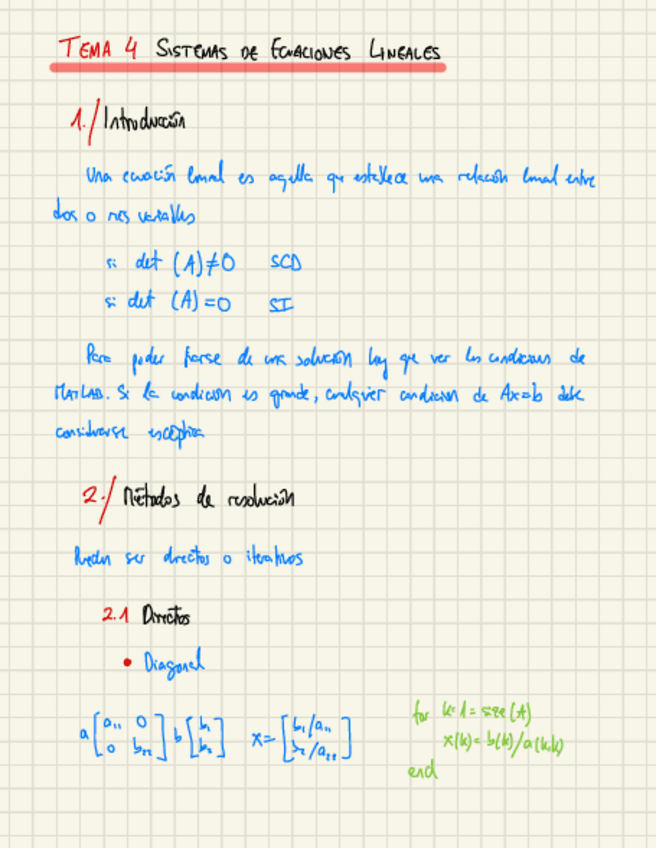 TEMA 4 SISTEMAS DE ECUACIONES LINEALES
1./ Introducción
Una ecuación lineal es aquella que establece una relación lineal entre
dos o mas variables
si det (A)≠0 SCD
si det (A)=0 SI
Para poder fiarse de una solución hay que ver las condiciones de
MATLAB. Si la condicion es grande, cualquier condicion de Ax=b debe
considerarse esceptica
2./ Métodos de resolución
Pueden ser directos o iterativos
2.1 Directos
• Diagonal
a [a₁₁ 0 b [b₁ x= [b₁/a₁₁
0 b₂₂] b₂] b₂/a₂₂]
for k=1=size(A)
x(k)=b(k)/a(k,k)
end